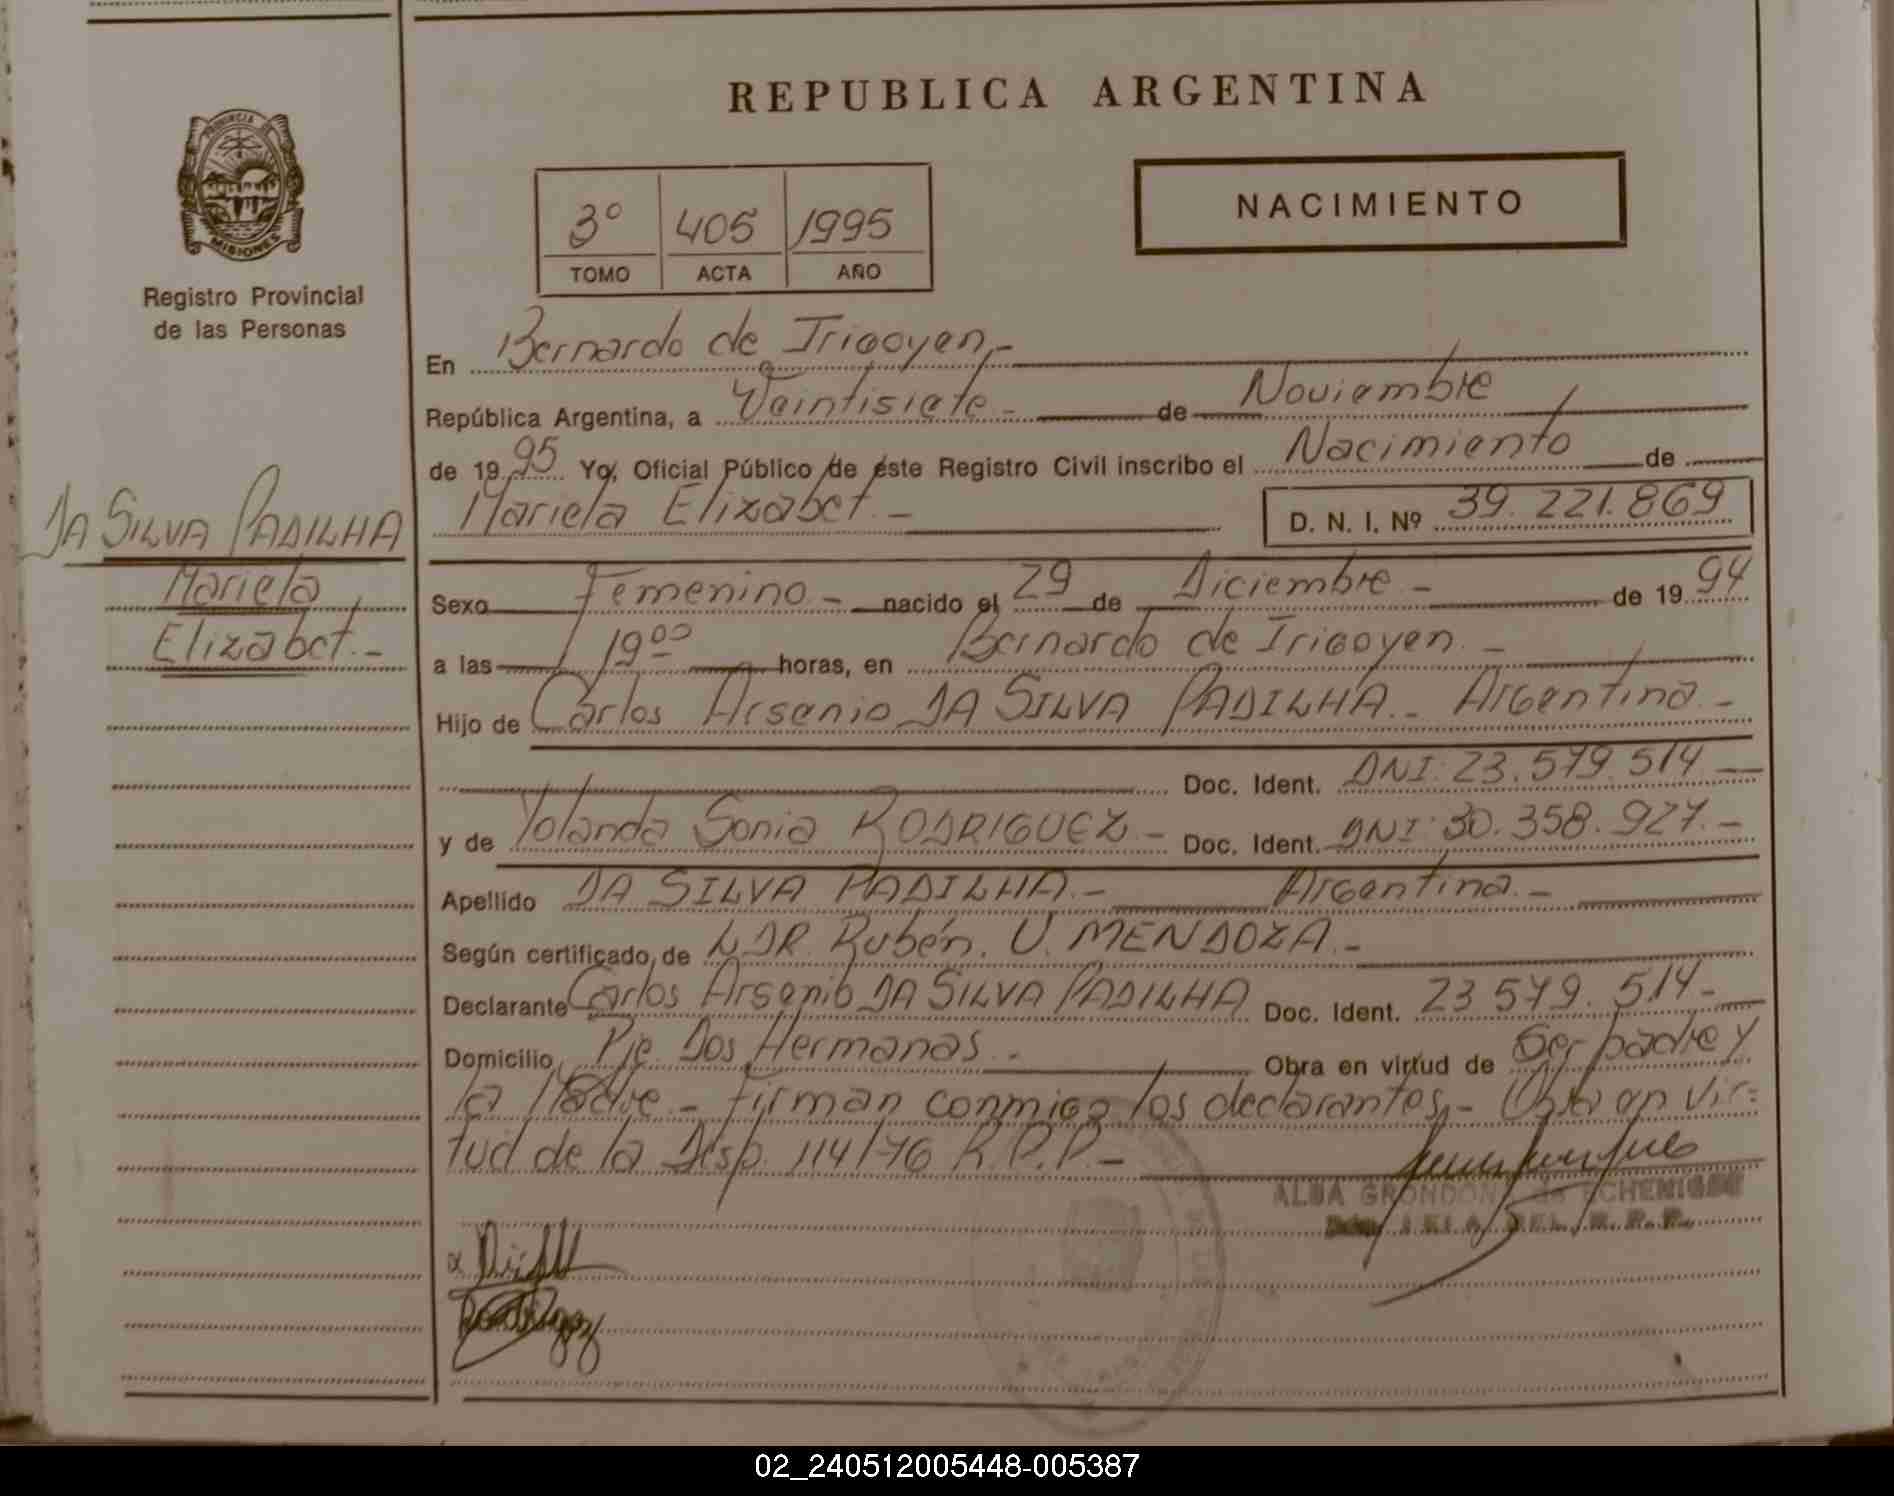 REPUBLICA ARGENTINA
PROVINCIA DE
MISIONES
Registro Provincial
de las Personas
3º 405 1995
TOMO ACTA AÑO
NACIMIENTO
En Bernardo de Irigoyen.-
República Argentina, a Veintisiete - de Noviembre
de 1995 Yo, Oficial Público de este Registro Civil inscribo el Nacimiento de
Mariela Elizabet.- D. N. I. Nº 39.221.869
DA SILVA PADILHA
Mariela
Elizabet.-
Sexo Femenino - nacido el 29 de Diciembre - de 1994
a las 19⁰⁰ horas, en Bernardo de Irigoyen.-
Hijo de Carlos Arsenio DA SILVA PADILHA.- Argentina.-
Doc. Ident. DNI: 23.579.514
y de Yolanda Sonia RODRIGUEZ.- Doc. Ident. DNI: 30.358.927.-
Apellido DA SILVA PADILHA.- Argentina.-
Según certificado de DR. Rubén. U. MENDOZA.-
Declarante Carlos Arsenio DA SILVA PADILHA Doc. Ident. 23 579. 514-
Domicilio Pje. Dos Hermanas.- Obra en virtud de Ser padre y
la Madre.- Firman conmigo los declarantes.- Obra en vir=
tud de la Disp. 114/76 R.P.P.-
ALBA GRONDONA de ECHENIQUE
DEL. R. P. P.
Rodriguez
02_240512005448-005387